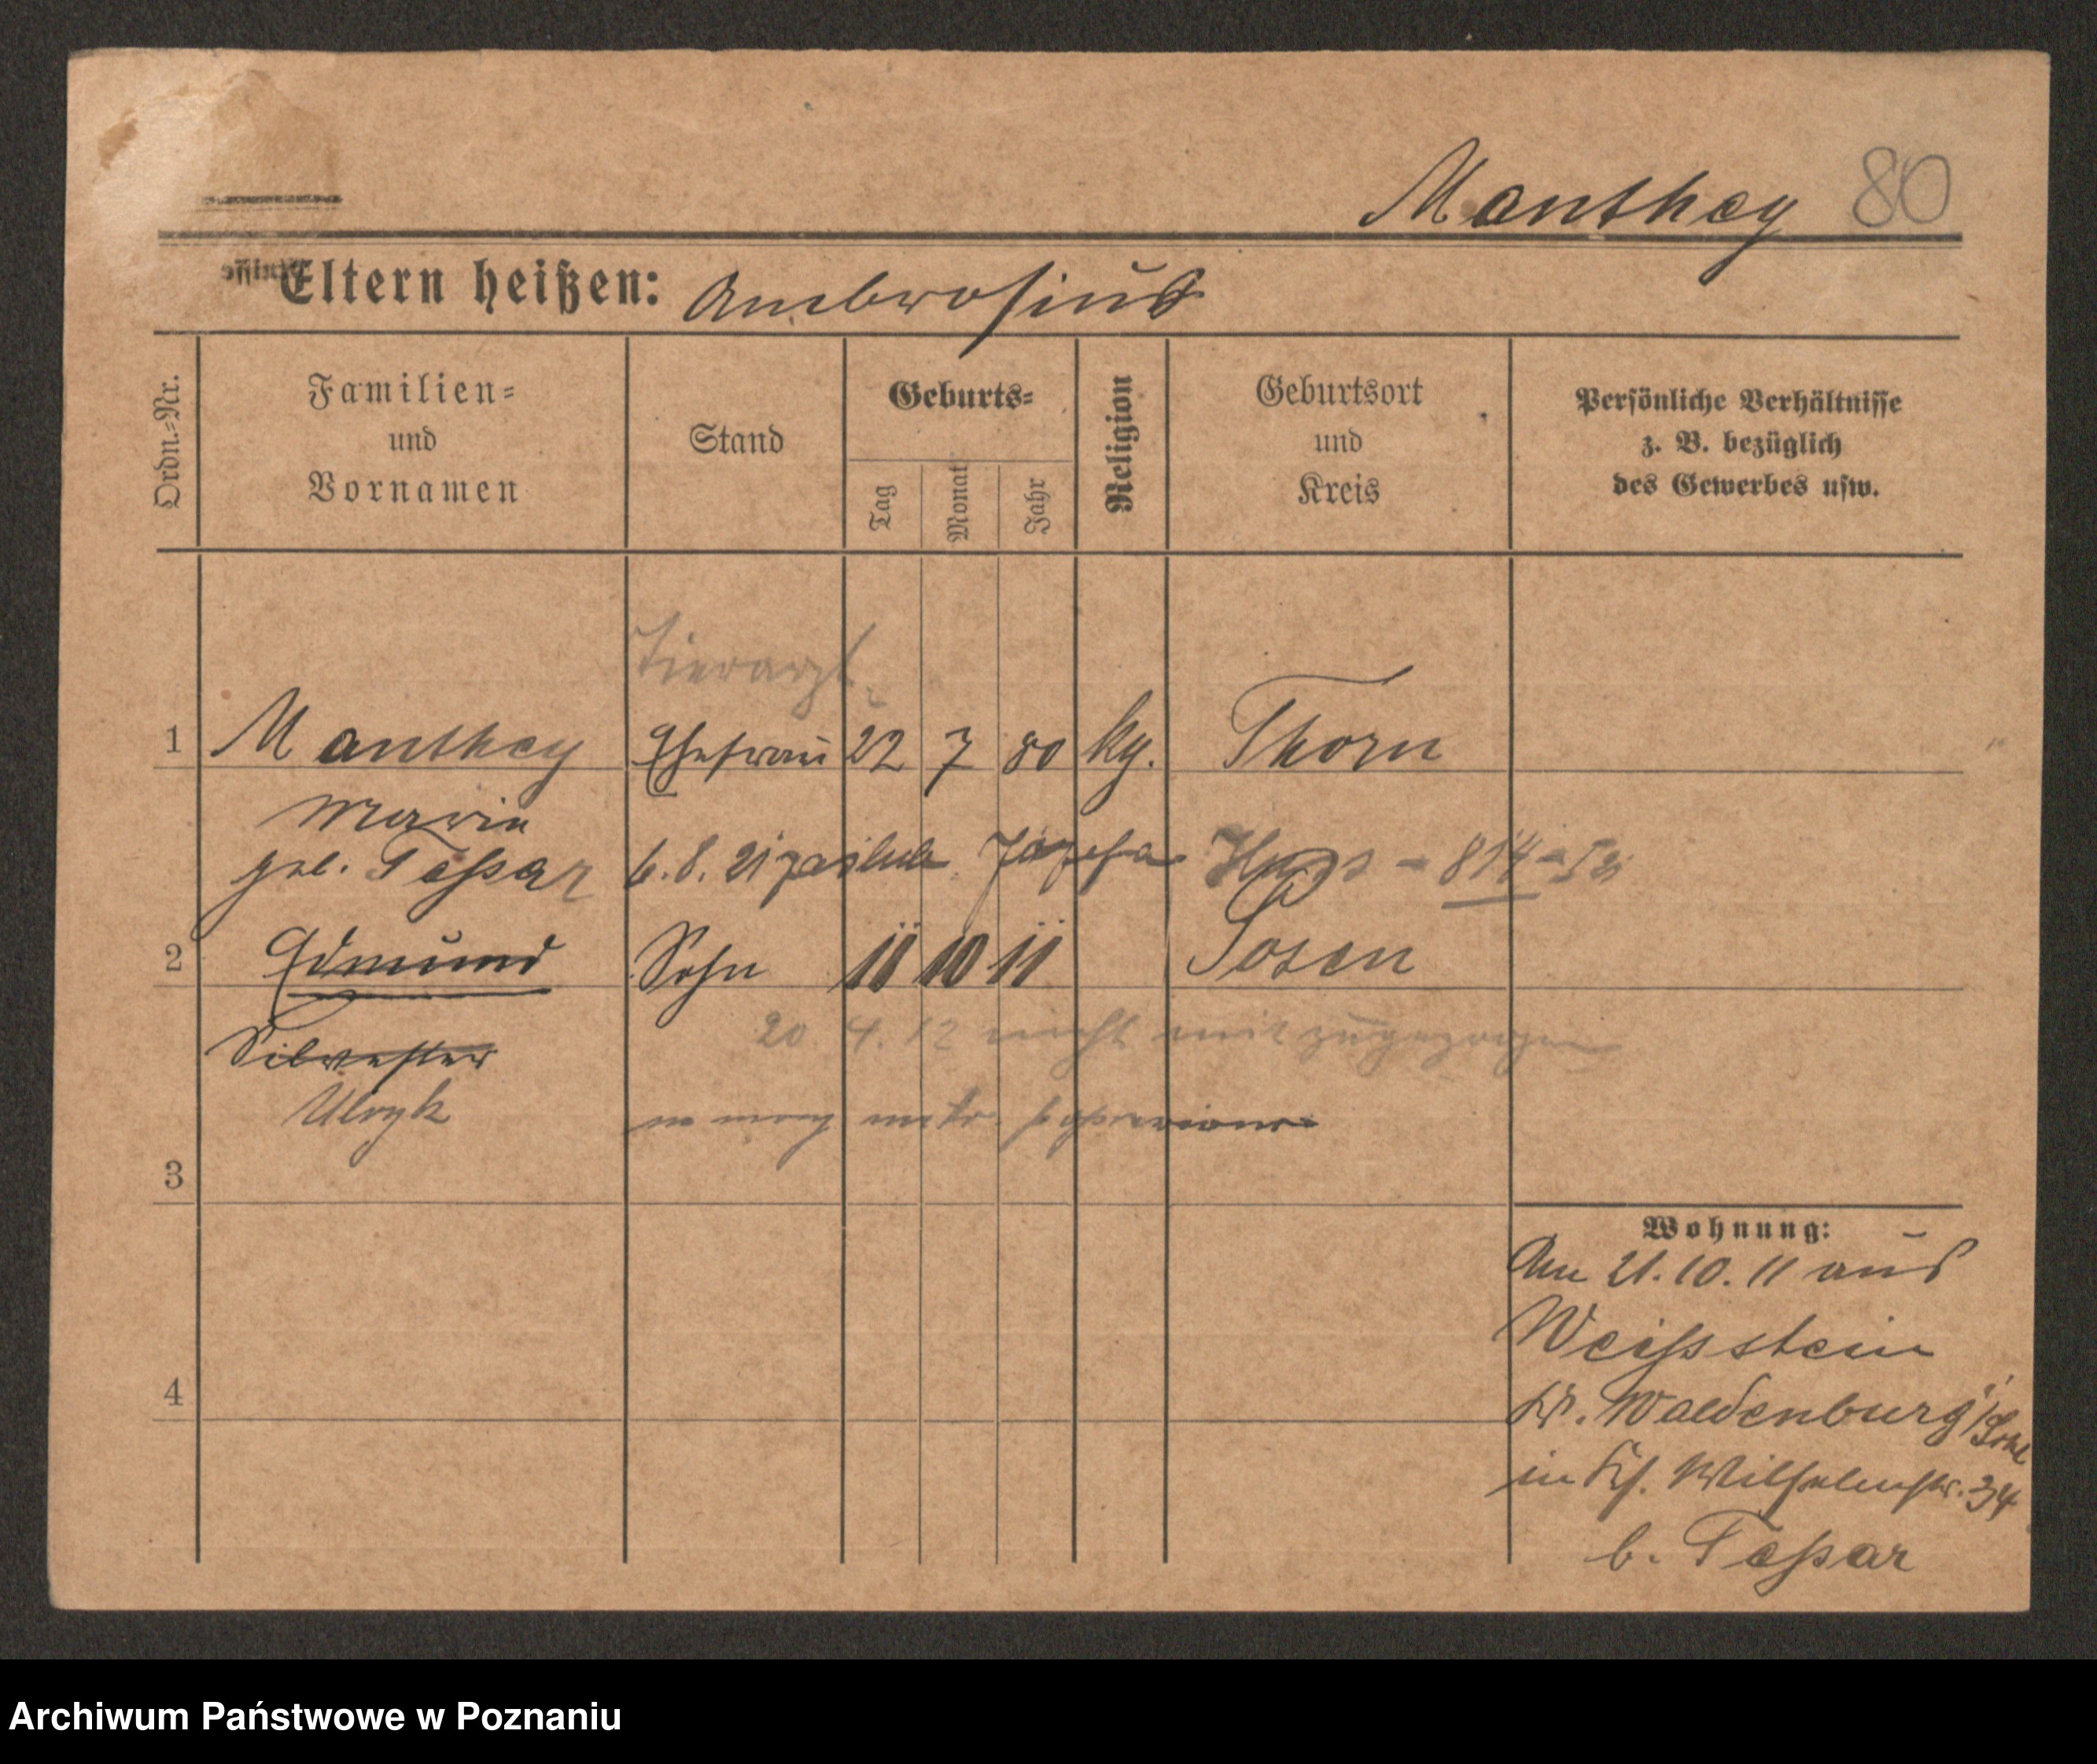 Manthey 80
Eltern heißen: Ambrosius
Ordn.-Nr.
Familien-
und
Vornamen
Stand
Geburts-
Tag
Monat
Jahr
Religion
Geburtsort
und
Kreis
Persönliche Verhältnisse
z. B. bezüglich
des Gewerbes usw.
Tierarzt
1 Manthey Ehefrau 22 7 80 kg. Thorn
Marie
geb. Teßar 6.8.21 zaślub. Józefa
2 Edmund Sohn 11 10 11 Posen
20.4.12 nicht mit zugezogen
Silvester
Ulryk
3
4
Wohnung:
Am 21.10.11 aus
Weißstein
Kr. Waldenburg i/Schl
in Ks. Wilhelmstr. 34
b. Teßar
Archiwum Państwowe w Poznaniu